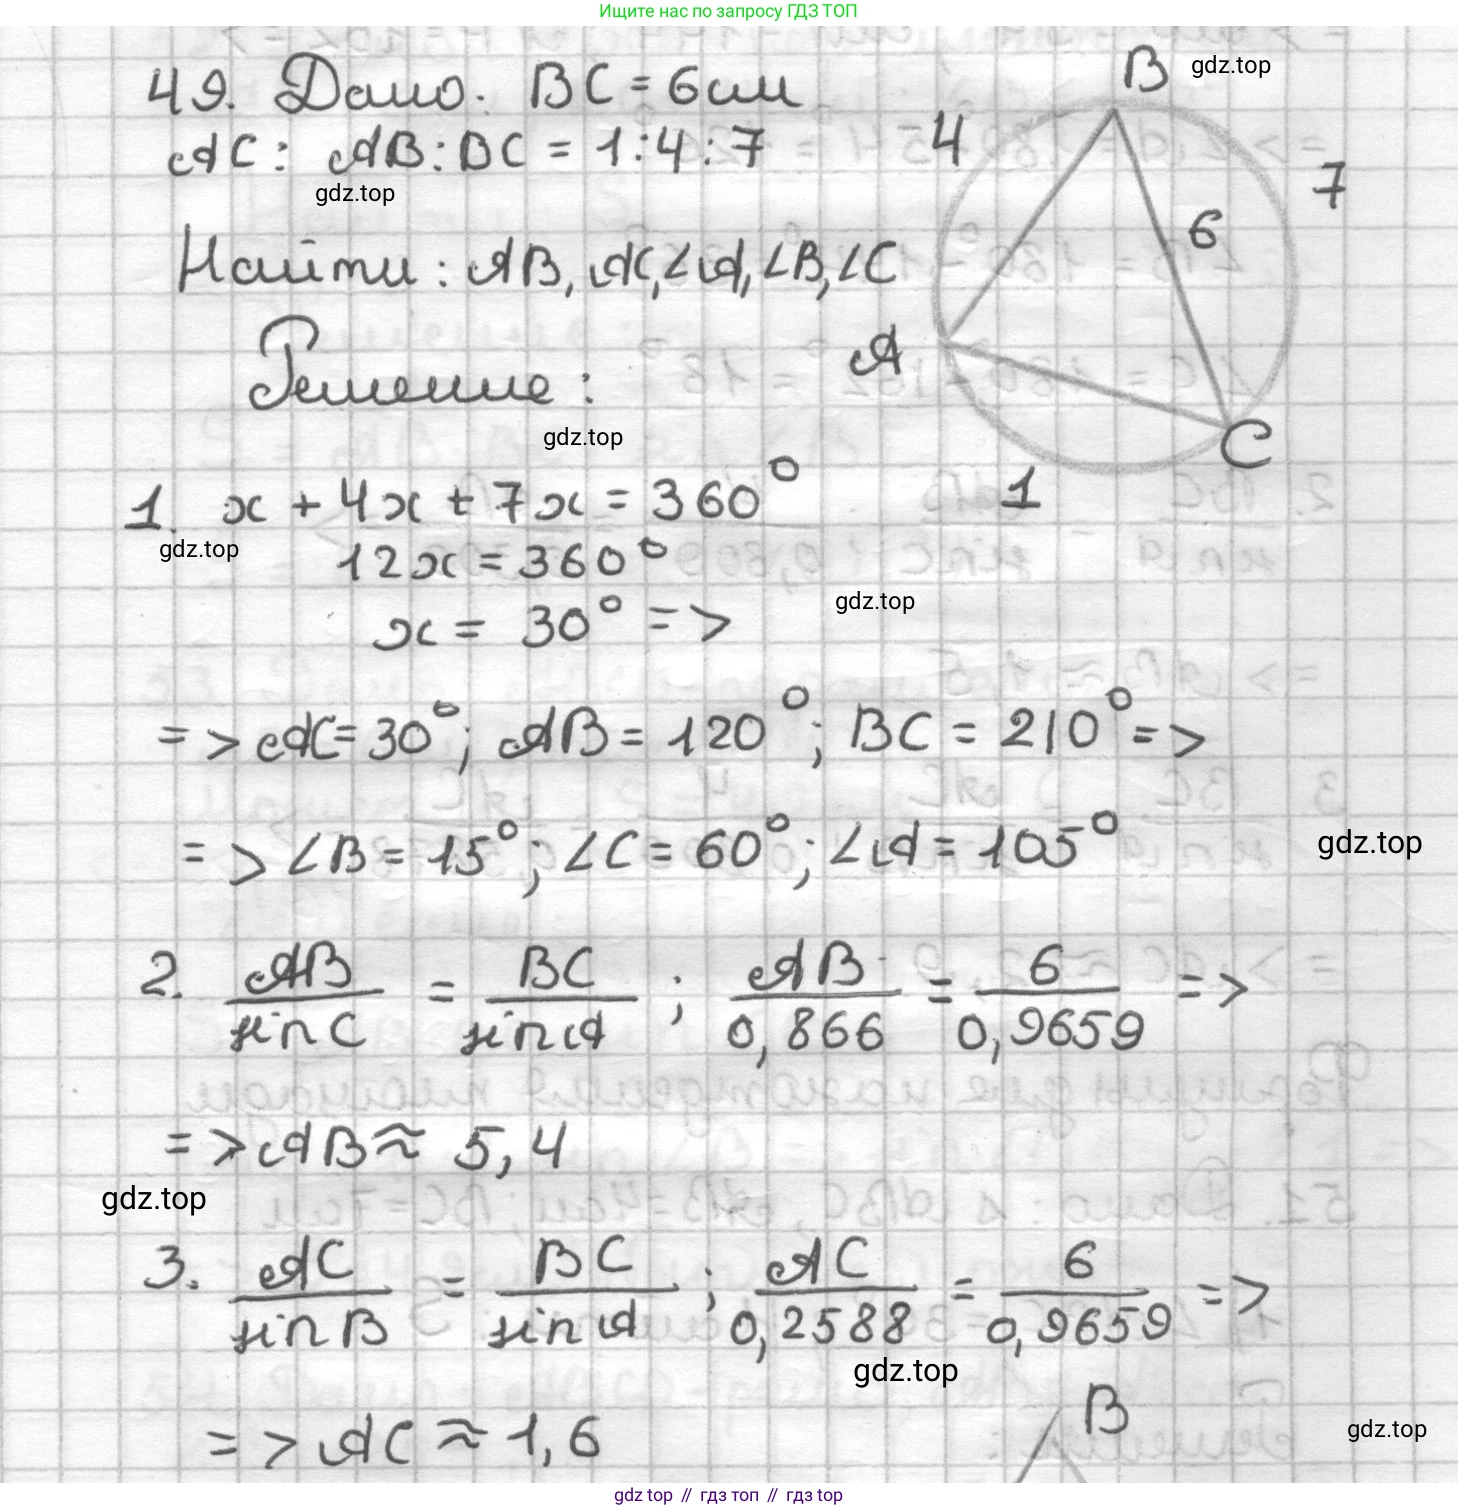 Ищите нас по запросу ГДЗ ТОП
49. Дано: BC = 6 см
AC : AB : BC = 1 : 4 : 7
gdz.top
Найти: AB, AC, ∠A, ∠B, ∠C
Решение:
gdz.top
B gdz.top
4
7
6
A
C
1
1. x + 4x + 7x = 360°
gdz.top
12x = 360°
gdz.top
x = 30° =>
=> AC = 30°; AB = 120°; BC = 210° =>
=> ∠B = 15°; ∠C = 60°; ∠A = 105°
gdz.top
2. AB/sin C = BC/sin A ; AB/0,866 = 6/0,9659 =>
=> AB ≈ 5,4
gdz.top
3. AC/sin B = BC/sin A ; AC/0,2588 = 6/0,9659 =>
gdz.top
=> AC ≈ 1,6
B
gdz.top
gdz top // гдз топ // гдз top